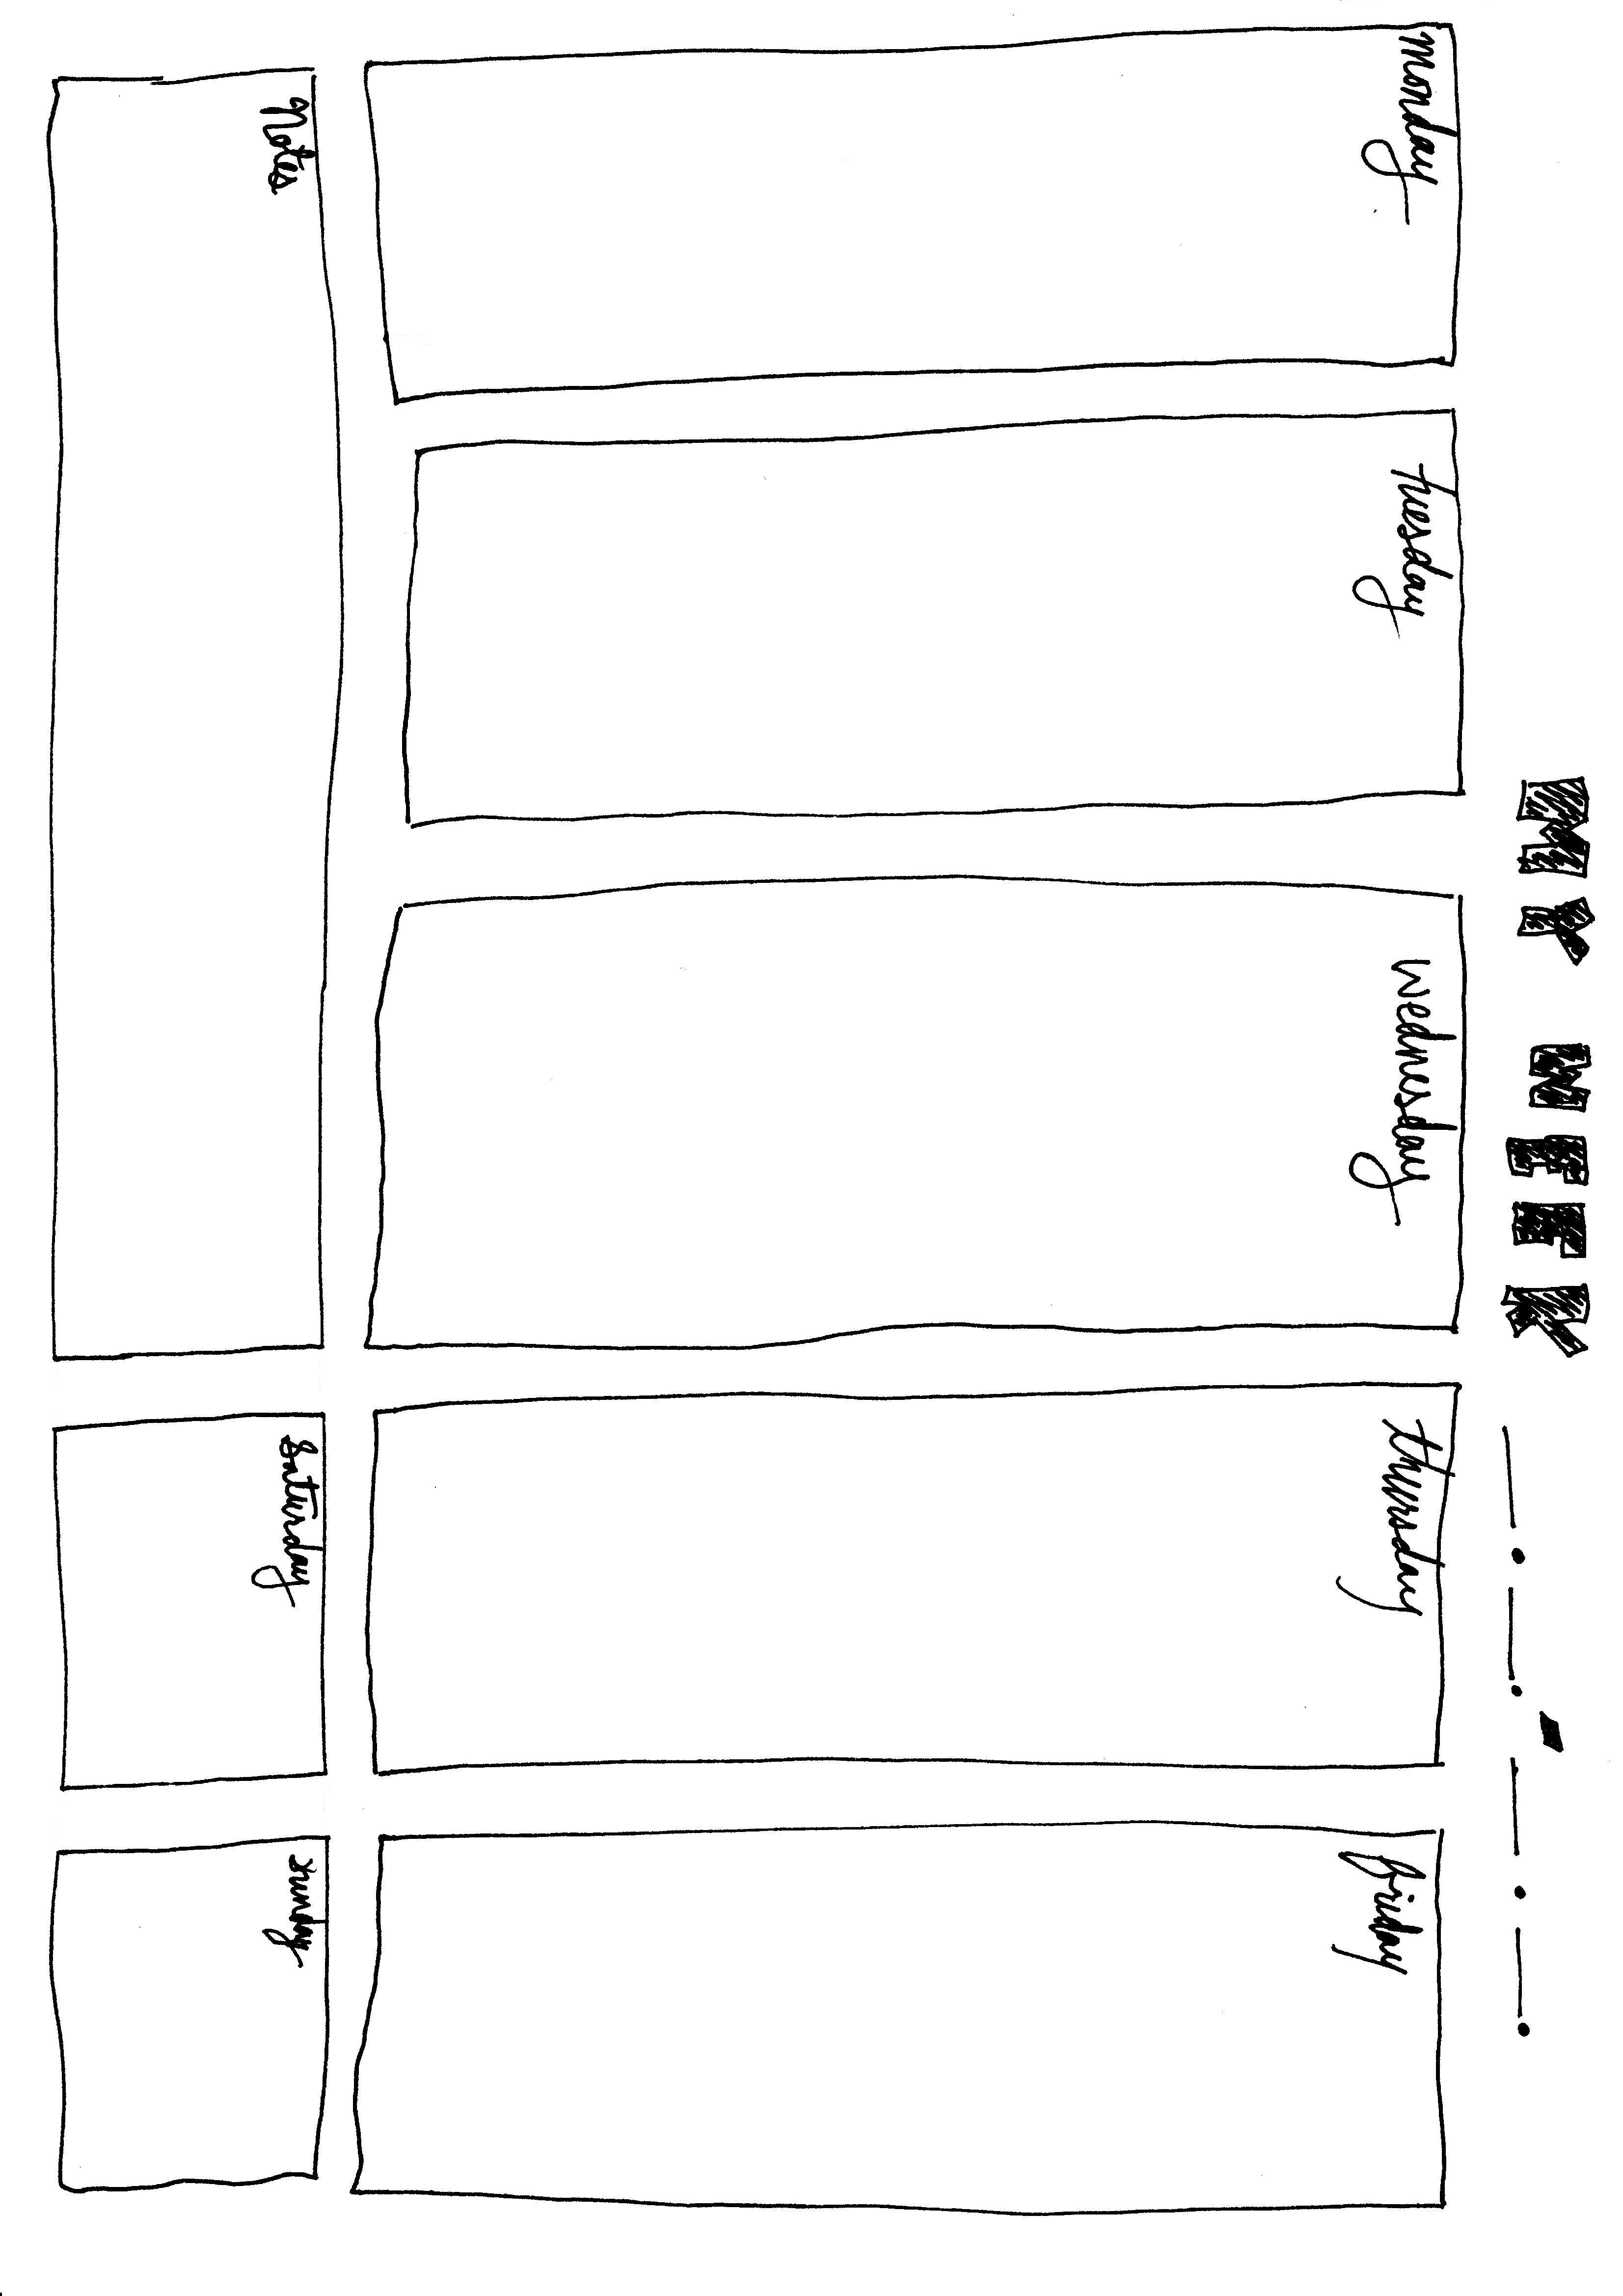 MY WEEK __.__.-__.__.
monday
tuesday
wednesday
thursday
friday
Notes
Saturday
Sunday